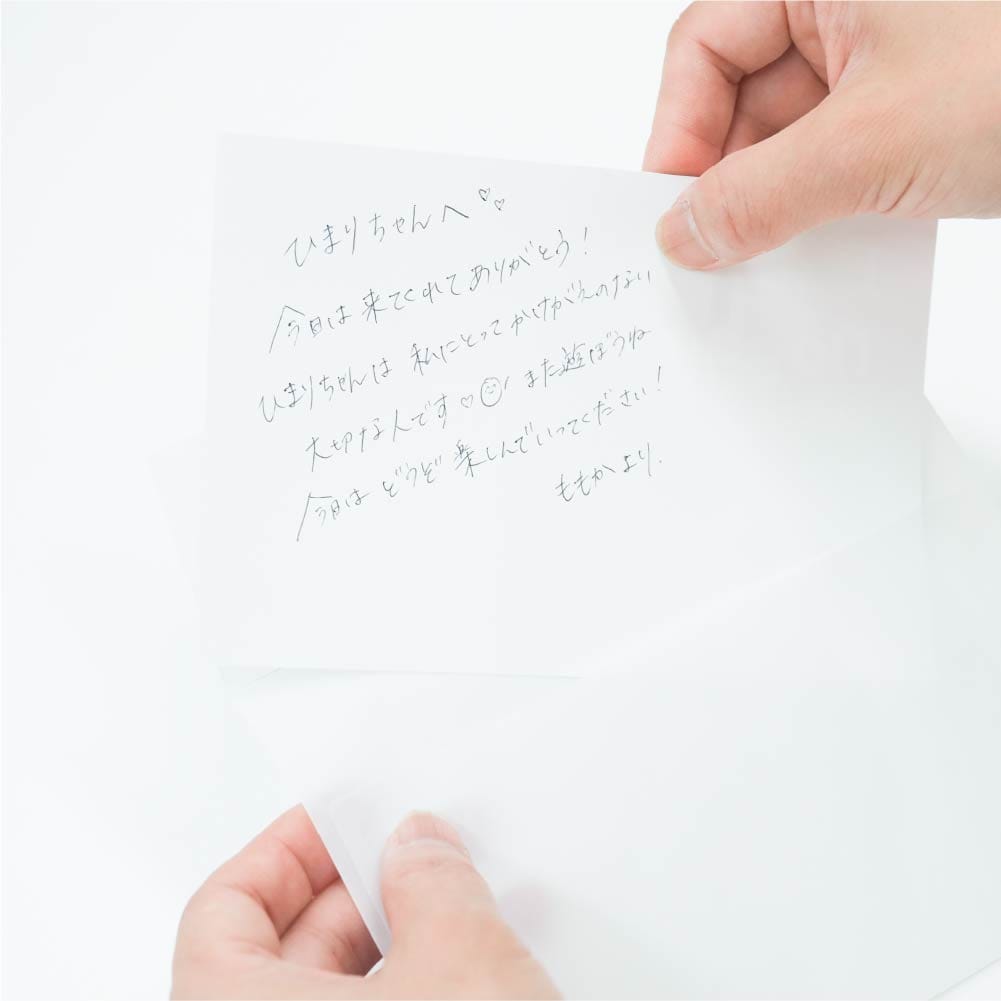 ひまりちゃんへ♡♡
今日は来てくれてありがとう!
ひまりちゃんは私にとってかけがえのない
大切な人です♡ また遊ぼうね
今日はどうぞ楽しんでいってください!
ももかより.